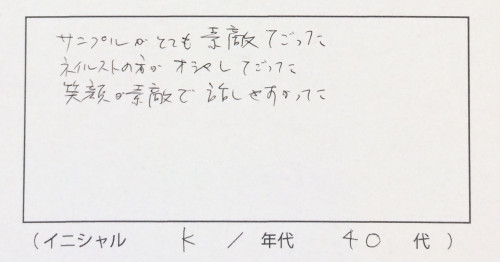 サンプルがとても素敵でごった
ネイルストの方がオシャしてごった
笑顔が素敵で話しやすかった
(イニシャル K / 年代 40 代)